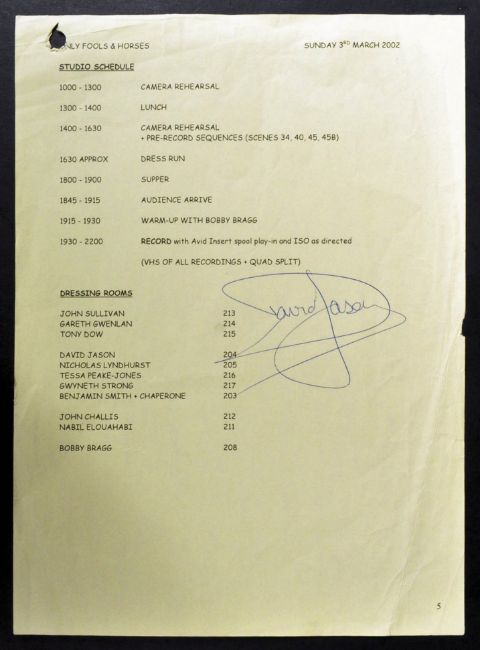 ONLY FOOLS & HORSES SUNDAY 3RD MARCH 2002
STUDIO SCHEDULE
1000 - 1300 CAMERA REHEARSAL
1300 - 1400 LUNCH
1400 - 1630 CAMERA REHEARSAL
+ PRE-RECORD SEQUENCES (SCENES 34, 40, 45, 45B)
1630 APPROX DRESS RUN
1800 - 1900 SUPPER
1845 - 1915 AUDIENCE ARRIVE
1915 - 1930 WARM-UP WITH BOBBY BRAGG
1930 - 2200 RECORD with Avid Insert spool play-in and ISO as directed
(VHS OF ALL RECORDINGS + QUAD SPLIT)
DRESSING ROOMS
David Jason
JOHN SULLIVAN 213
GARETH GWENLAN 214
TONY DOW 215
DAVID JASON 204
NICHOLAS LYNDHURST 205
TESSA PEAKE-JONES 216
GWYNETH STRONG 217
BENJAMIN SMITH + CHAPERONE 203
JOHN CHALLIS 212
NABIL ELOUAHABI 211
BOBBY BRAGG 208
5